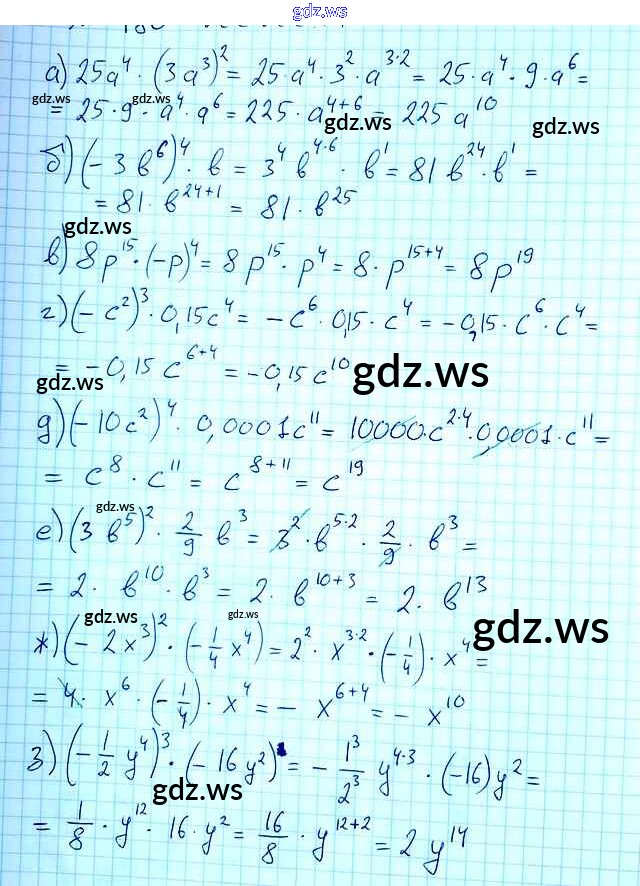 gdz.ws
а) 25a⁴ · (3a³)² = 25·a⁴·3²·a³·² = 25·a⁴·9·a⁶ =
gdz.ws gdz.ws
= 25·9·a⁴·a⁶ = 225·a⁴⁺⁶ = 225a¹⁰
gdz.ws gdz.ws
б) (-3b⁶)⁴·b = 3⁴b⁴·⁶·b¹ = 81b²⁴·b¹ =
= 81·b²⁴⁺¹ = 81·b²⁵
gdz.ws
в) 8p¹⁵·(-p)⁴ = 8p¹⁵·p⁴ = 8·p¹⁵⁺⁴ = 8p¹⁹
г) (-c²)³·0,15c⁴ = -c⁶·0,15·c⁴ = -0,15·c⁶·c⁴ =
= -0,15c⁶⁺⁴ = -0,15c¹⁰
gdz.ws gdz.ws
д) (-10c²)⁴·0,0001c¹¹ = 10000·c²·⁴·0,0001·c¹¹ =
= c⁸·c¹¹ = c⁸⁺¹¹ = c¹⁹
gdz.ws
е) (3b⁵)²·2/9 b³ = 3²·b⁵·²·2/9·b³ =
= 2·b¹⁰·b³ = 2·b¹⁰⁺³ = 2·b¹³
gdz.ws gdz.ws gdz.ws
ж) (-2x³)²·(-1/4 x⁴) = 2²·x³·²·(-1/4)·x⁴ =
= 4·x⁶·(-1/4)·x⁴ = -x⁶⁺⁴ = -x¹⁰
з) (-1/2 y⁴)³·(-16y²) = -1³/2³ y⁴·³·(-16)y² =
gdz.ws gdz.ws
= 1/8·y¹²·16·y² = 16/8·y¹²⁺² = 2y¹⁴